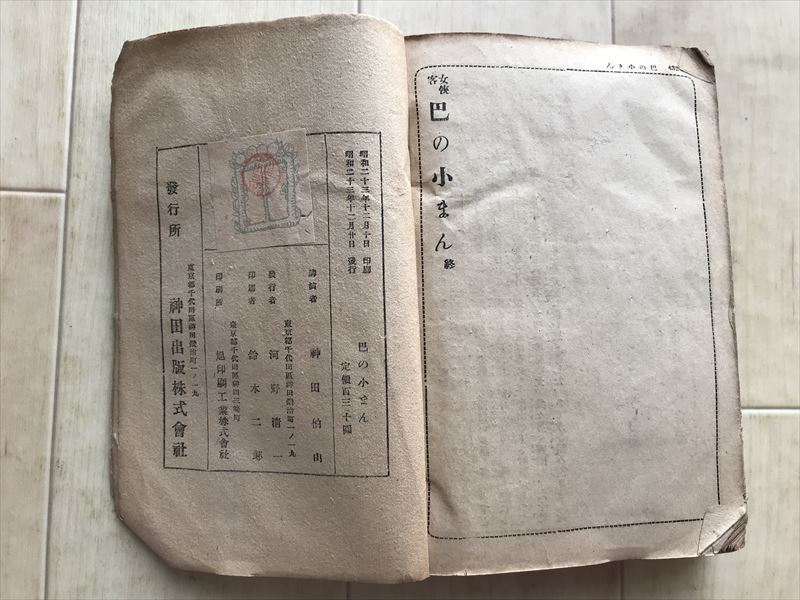 巴の小まん
女俠客
巴の小まん 終
昭和二十三年十二月十日 印刷
昭和二十三年十二月廿日 發行
巴の小まん
定價百三十圓
講演者 神田伯由
東京都千代田區神田鍛治町一ノ一九
發行者 河野清一
印刷者 鈴木二郎
東京都千代田區神田三崎町
印刷所 旭印刷工業株式會社
發行所
東京都千代田區神田鍛治町一ノ一九
神田出版株式會社